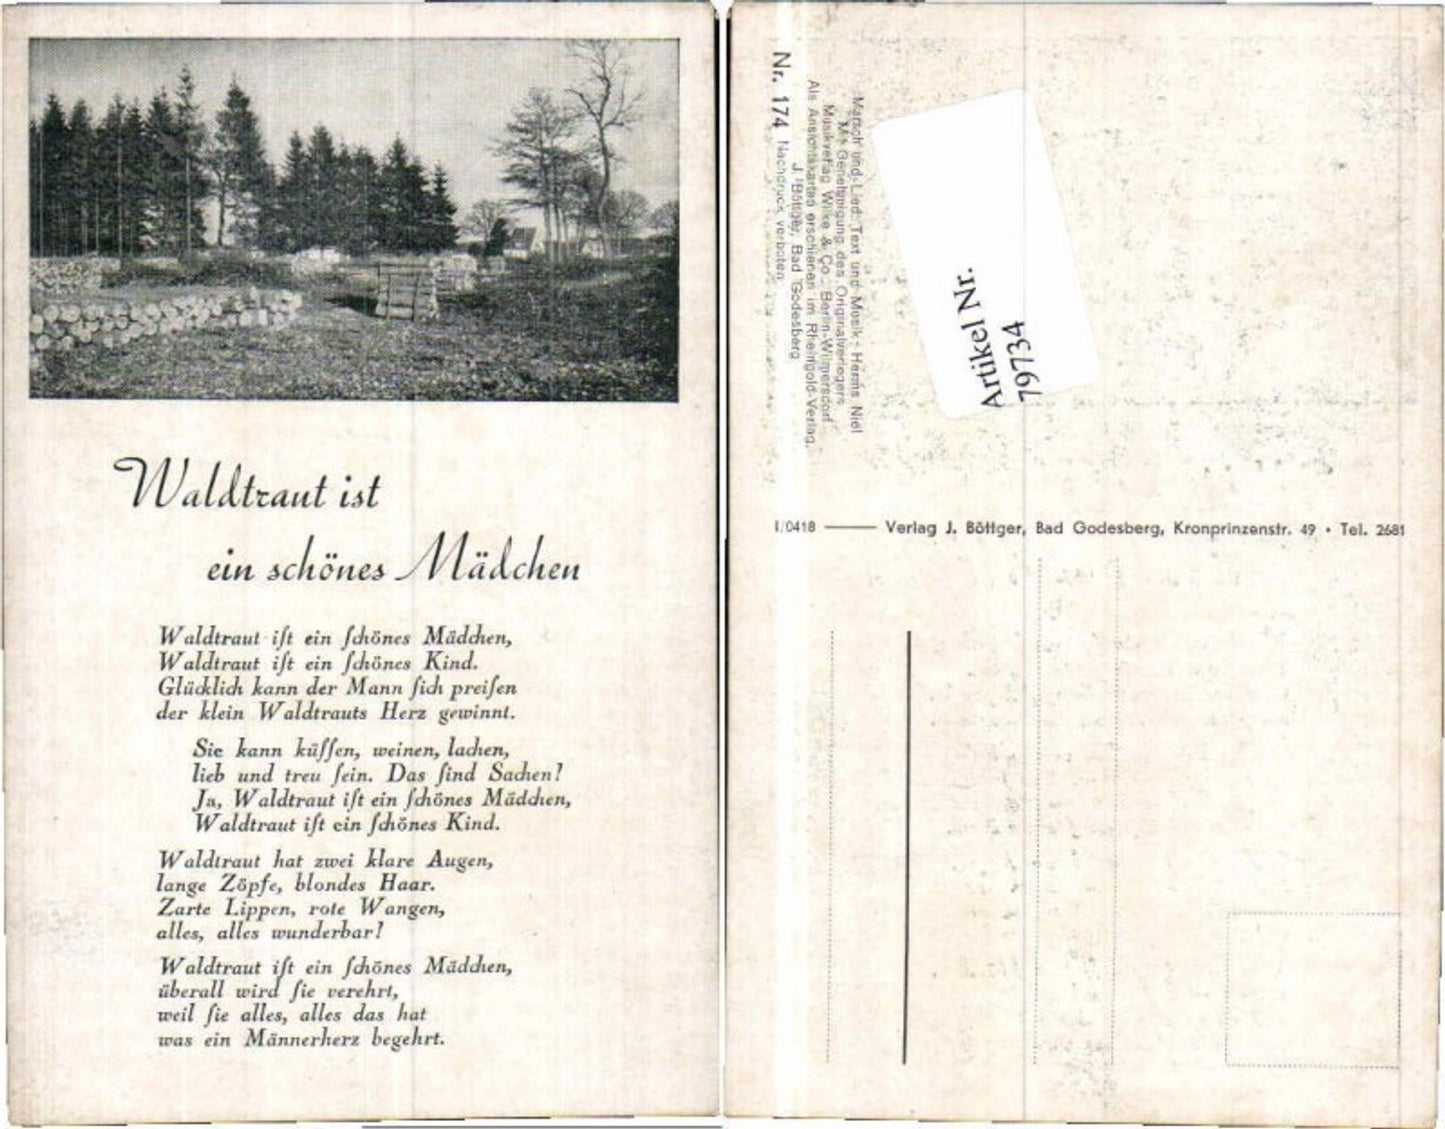 Waldtraut ist
ein schönes Mädchen
Waldtraut iſt ein ſchönes Mädchen,
Waldtraut iſt ein ſchönes Kind.
Glücklich kann der Mann ſich preiſen
der klein Waldtrauts Herz gewinnt.
Sie kann küſſen, weinen, lachen,
lieb und treu ſein. Das ſind Sachen!
Ja, Waldtraut iſt ein ſchönes Mädchen,
Waldtraut iſt ein ſchönes Kind.
Waldtraut hat zwei klare Augen,
lange Zöpfe, blondes Haar.
Zarte Lippen, rote Wangen,
alles, alles wunderbar!
Waldtraut iſt ein ſchönes Mädchen,
überall wird ſie verehrt,
weil ſie alles, alles das hat
was ein Männerherz begehrt.
Marsch und Lied. Text und Musik: Herms Niel
Mit Genehmigung des Originalverlegers
Musikverlag Wilke & Co., Berlin-Wilmersdorf
Als Ansichtskarten erschienen im Rheingold-Verlag,
J. Böttger, Bad Godesberg
Nr. 174 Nachdruck verboten
Artikel Nr.
79734
I/0418 —— Verlag J. Böttger, Bad Godesberg, Kronprinzenstr. 49 • Tel. 2681